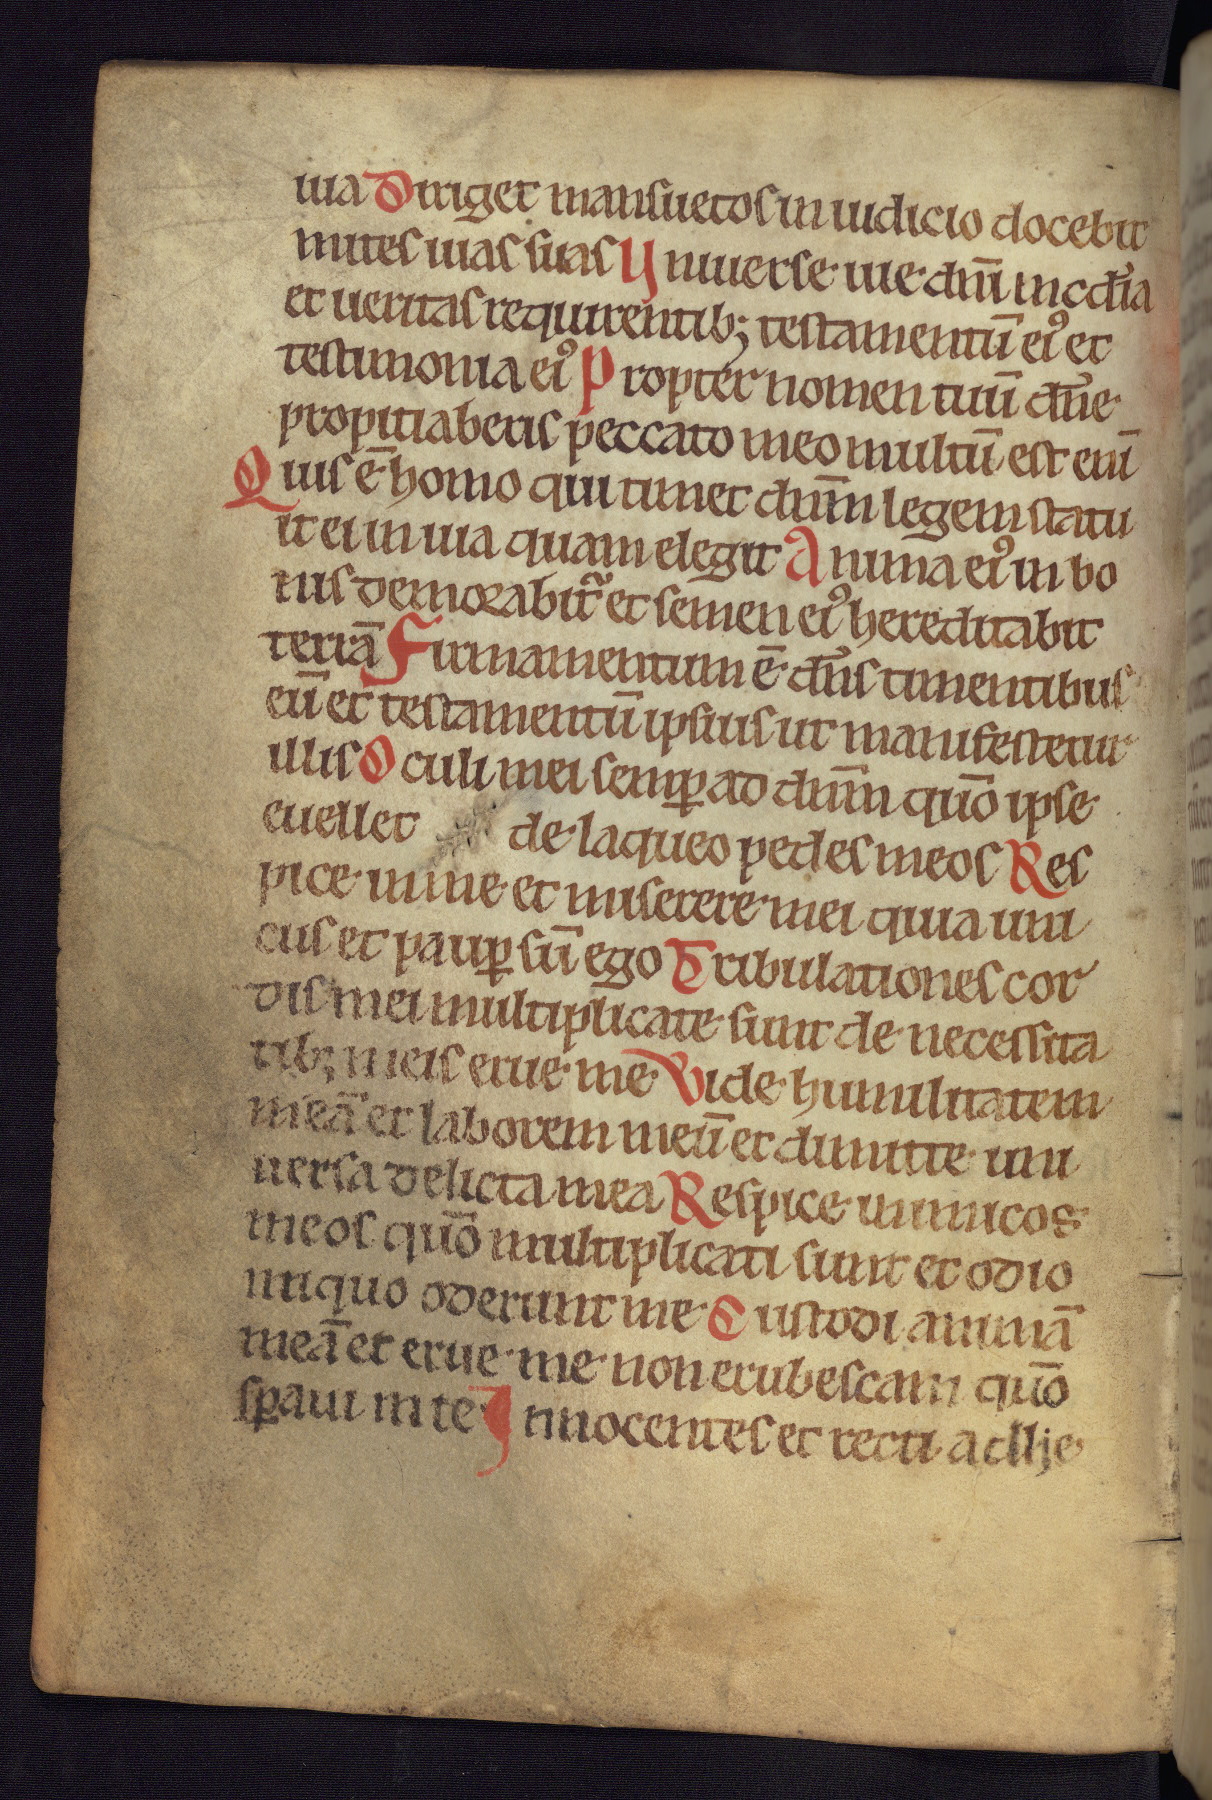 uia Diriget mansuetos in iudicio docebit
mites uias suas Vniuerse uie dn̄i mcd̄ia
et ueritas requirentib; testamentū eiꝰ et
testimonia eiꝰ Propter nomen tuū dn̄e
propitiaberis peccato meo multū est eni̅
Quis ē homo qui timet dn̄m legem statu
it ei in uia quam elegit Anima eiꝰ in bo
nis demorabit᷑ et semen eiꝰ hereditabit
terrā Firmamentum ē dn̄s timentibus
eū et testamentū ipsius ut manifestetur
illis Oculi mei semꝑ ad dn̄m quō ipse
euellet de laqueo pedes meos Res
pice in me et miserere mei quia uni
cus et pauꝑ sū ego Tribulationes cor
dis mei multiplicate sunt de necessita
tib; meis erue me Vide humilitatem
meā et laborem meū et dimitte uni
uersa delicta mea Respice inimicos
meos quō multiplicati sunt et odio
iniquo oderunt me Custodi animā
meā et erue me non erubescam quō
sꝑaui in te Innocentes et recti adhe